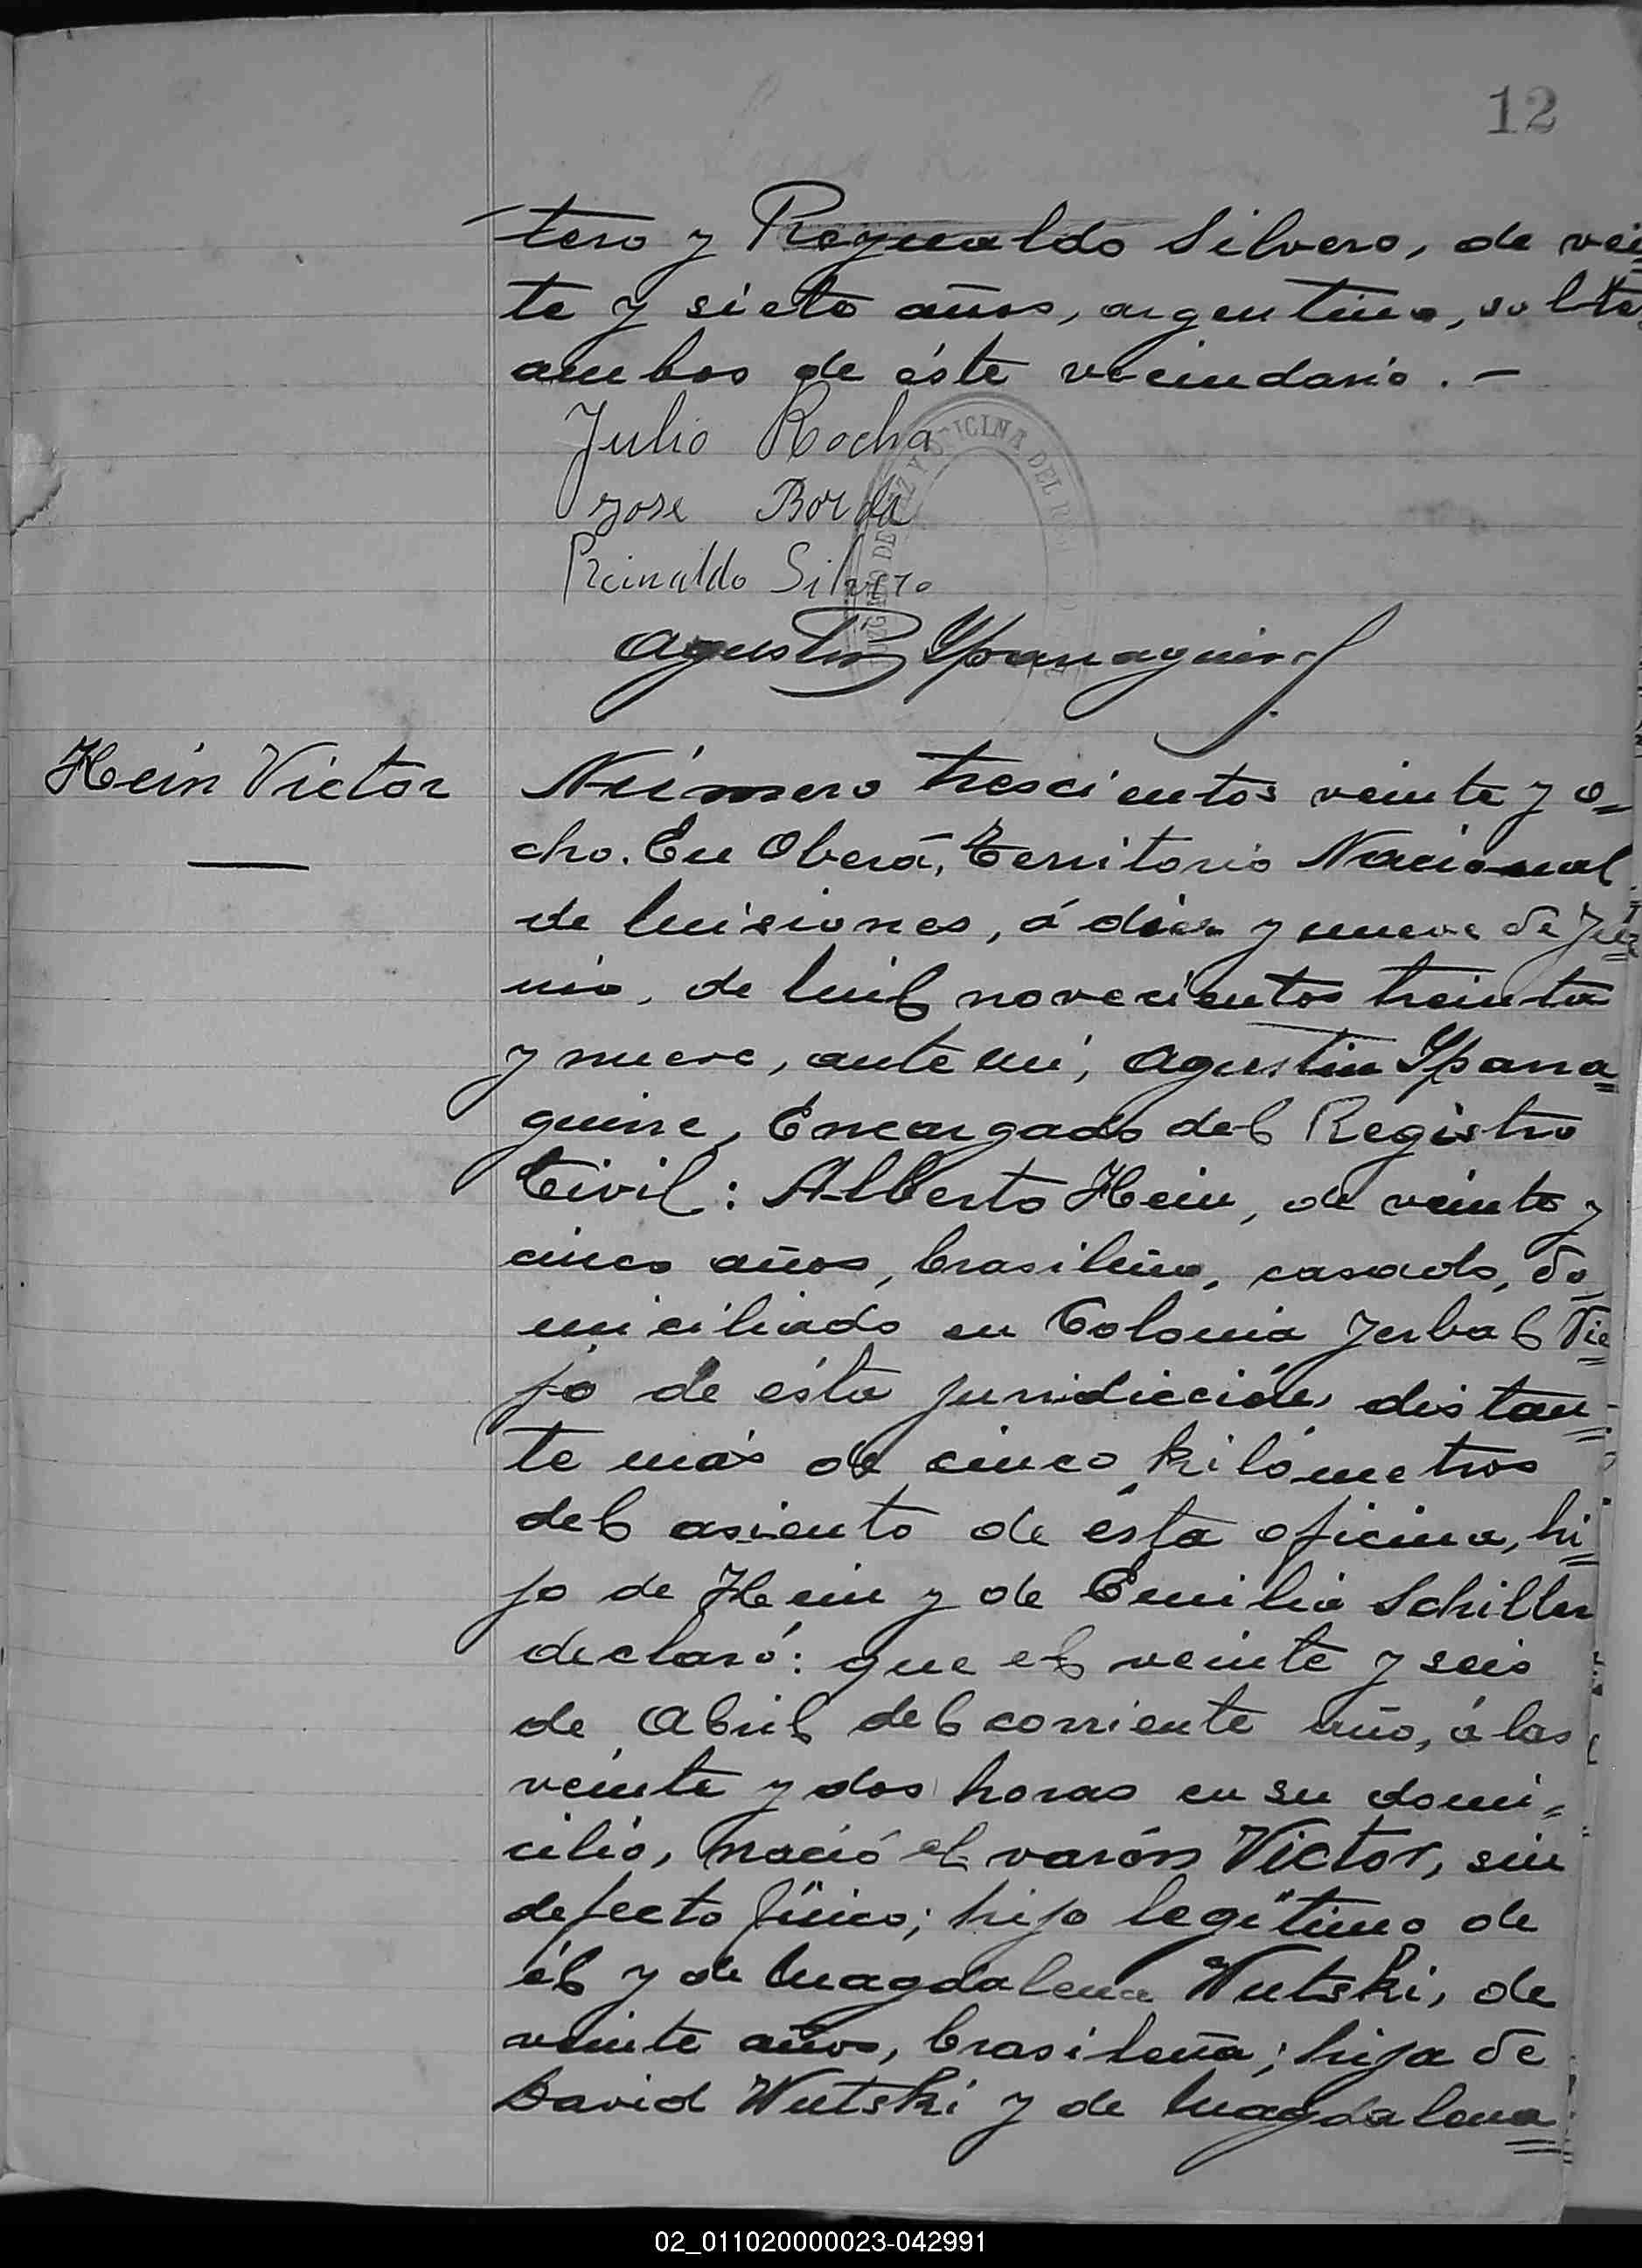 12
tero y Reynaldo Silvero, de vein
te y siete años, argentino, solte
ambos de éste vecindario. -
Julio Rocha
Jose Borda
Reinaldo Silvero
Agustin Yparraguirre
JUZGADO DE PAZ Y OFICINA DEL
Hein Victor
Número trescientos veinte y o=
cho. En Oberá, Territorio Nacional
de Misiones, á diez y nueve de Ju=
nio, de mil novecientos treinta
y nueve, ante mi, Agustin Yparra=
guirre, Encargado del Registro
Civil: Alberto Hein, de veinte y
cinco años, brasileño, casado, do=
miciliado en Colonia Yerbal Vie=
jo de ésta jurisdicción distan=
te más de cinco kilómetros
del asiento de ésta oficina, hi=
jo de Hein y de Emilia Schiller
declaró: que el veinte y seis
de Abril del corriente año, á las
veinte y dos horas en su domi=
cilio, nació el varón Victor, sin
defecto físico; hijo legítimo de
él y de Magdalena Wutski, de
veinte años, brasileña; hija de
David Wutski y de Magdalena=
02_011020000023-042991